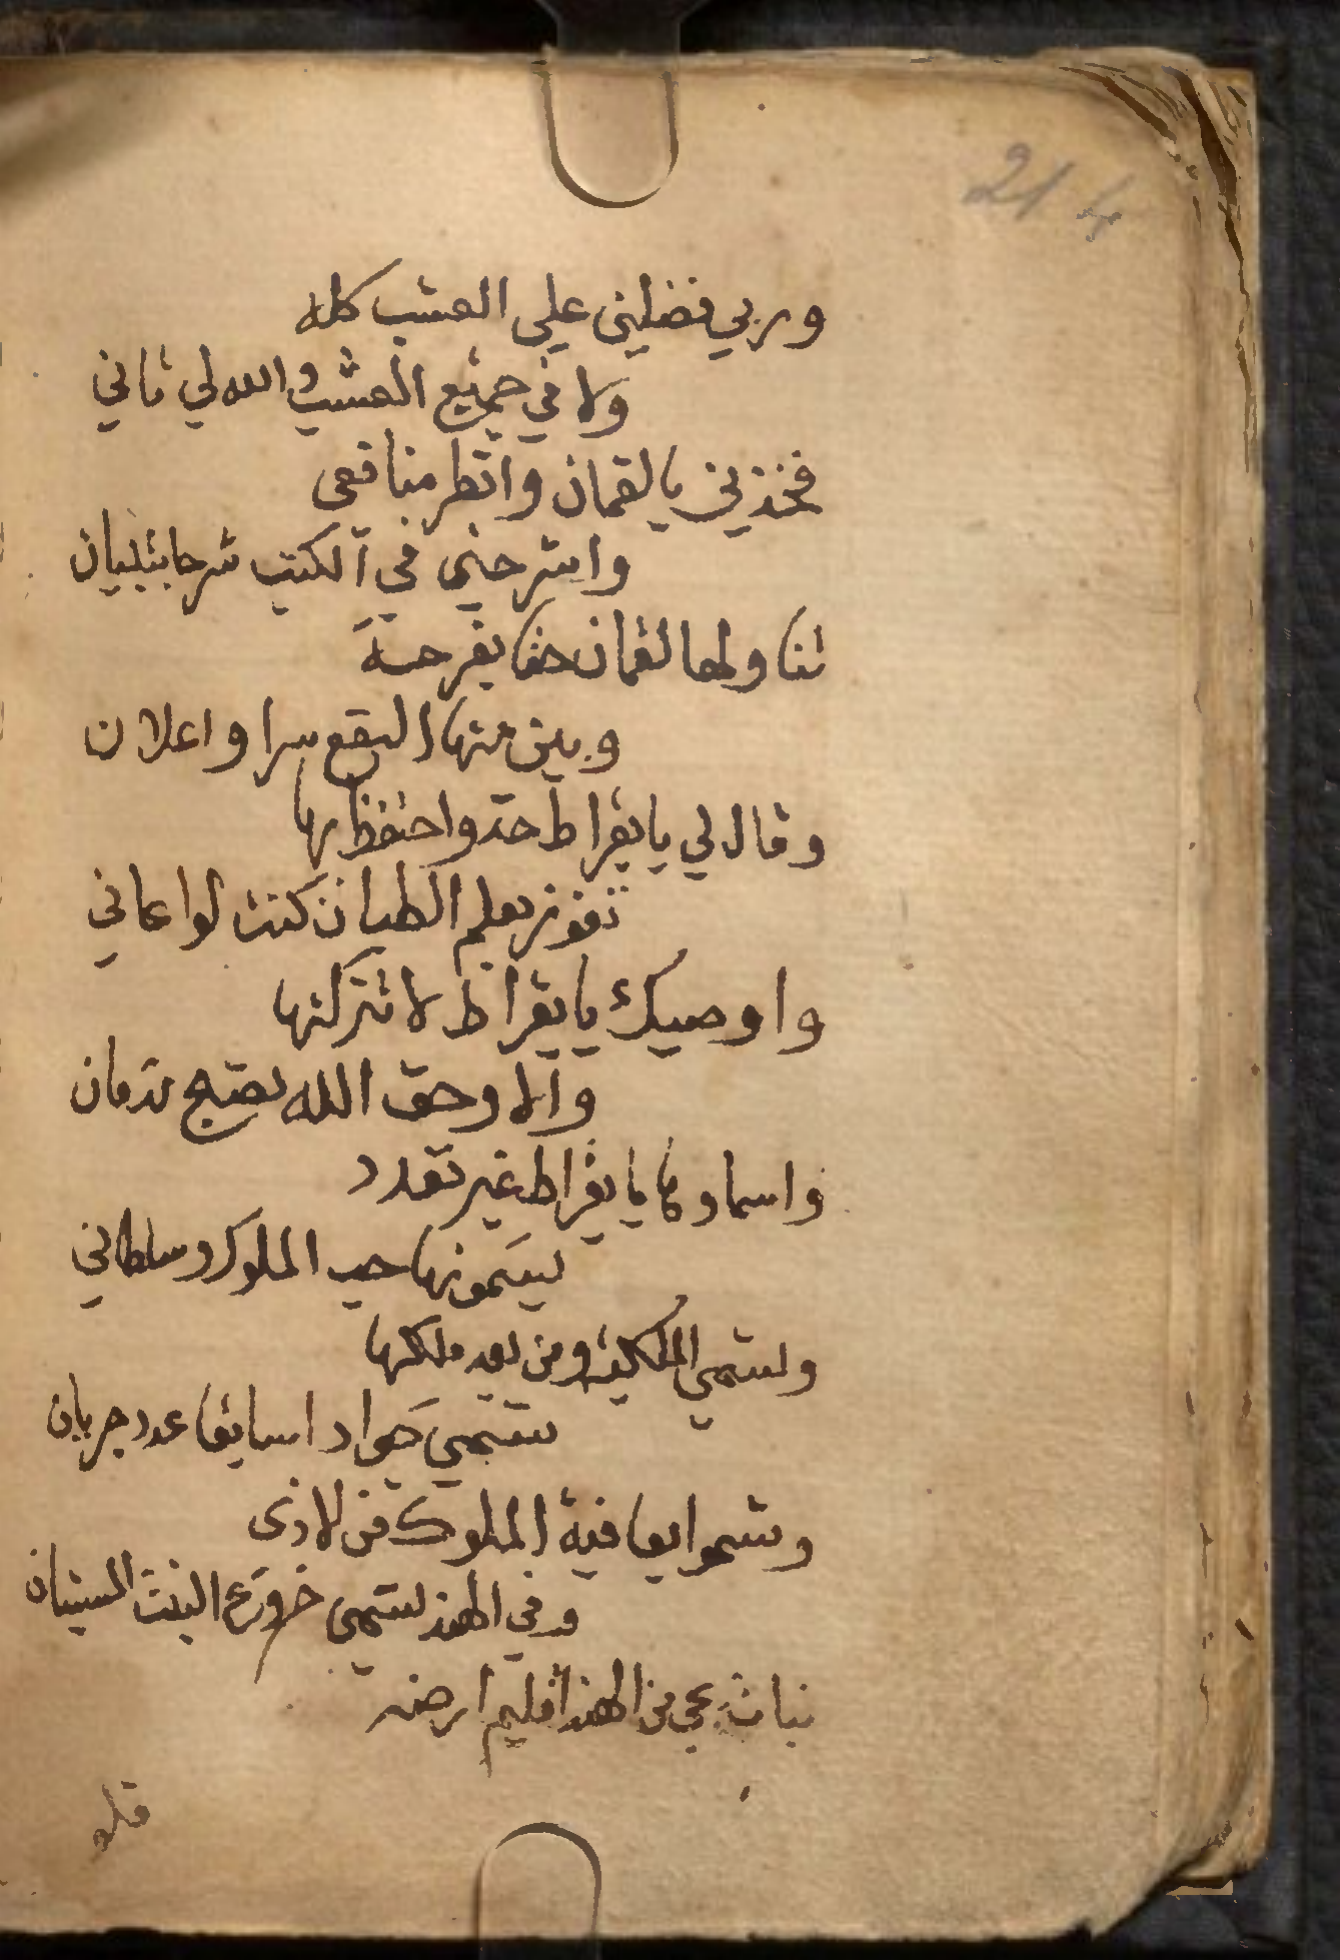 214
وربي فضلني علي العشب كله
ولا في جميع العشب والله لي ثاني
فخذني يا لقمان وانظر منافعي
واشرحني في الكتب شرحا بتبيان
تناولها لقمان حقا بفرحة
وبين منها النفع سرا واعلان
وقال لي يا بقراط خذ واحتفظ بها
تفوز بعلم الطب ان كنت لواعاني
واوصيك يا بقراط لا تتركنها
والا وحق الله تصبح ندمان
واسماوها يا بقراط غير تعدد
يسمونها حب الملوك وسلطاني
وتسمي الملكية ومن بعد ملكها
تسمي جواد اسابقا عدد جريان
وسموا بعافية الملوك من الاذى
وفي الهند تسمى البنت
نبات يجي من الهند اقليم ارضه